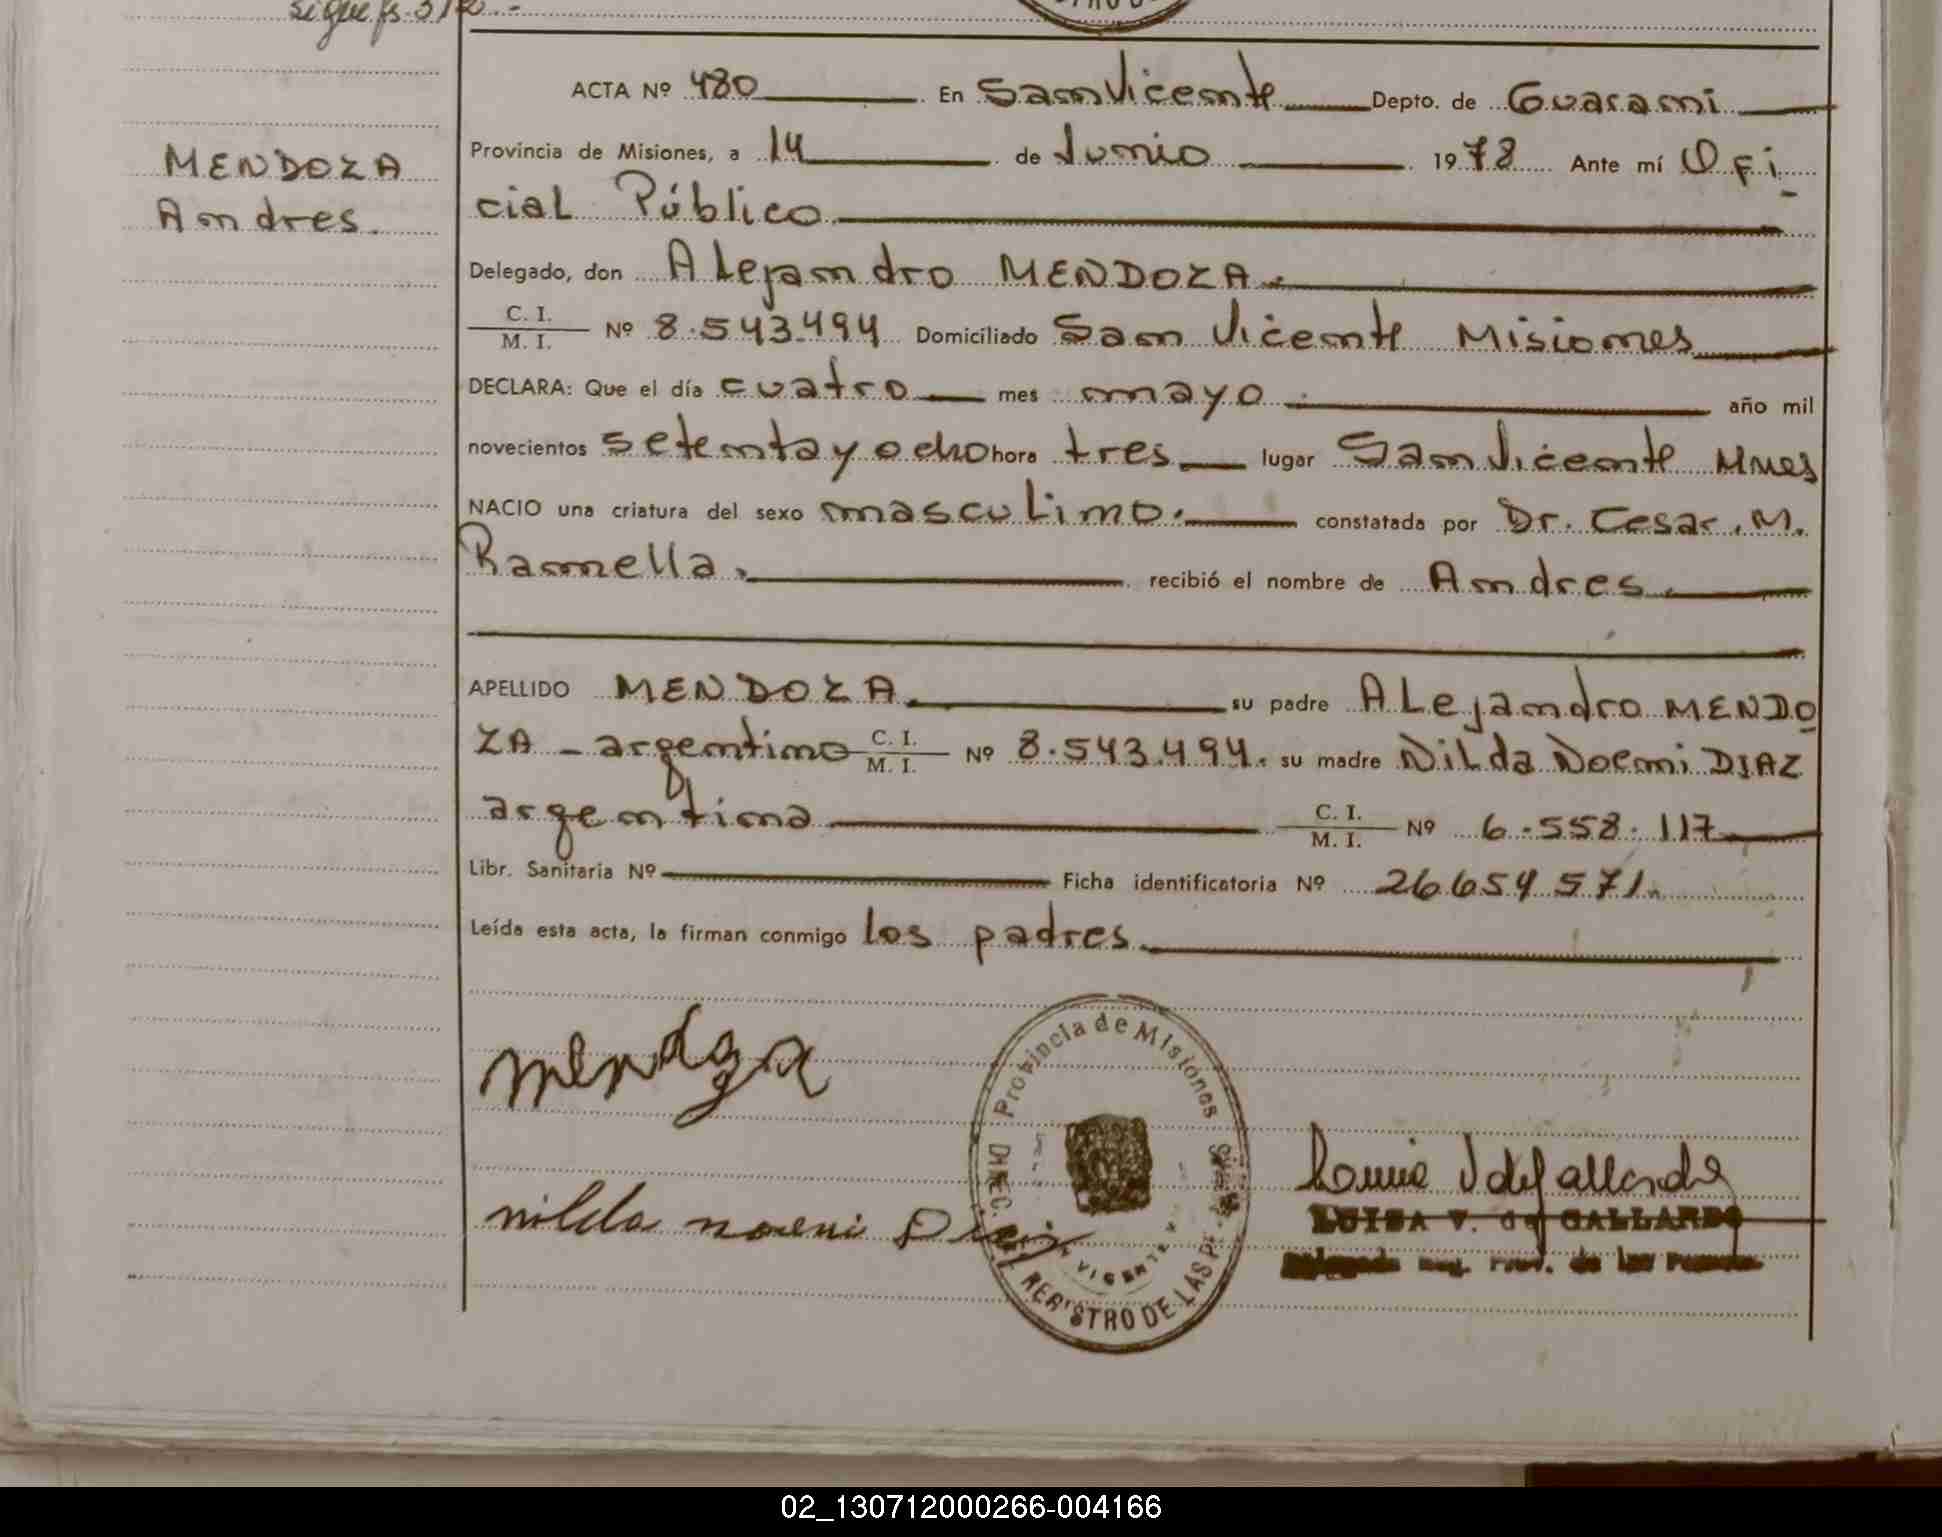 Sigue fs.
ACTA Nº 480 En San Vicente Depto. de Guarani
Provincia de Misiones, a 14 de Junio 1978 Ante mí Ofi
cial Público
MENDOZA
Andres.
Delegado, don Alejandro MENDOZA.
C. I.
M. I. Nº 8.543.494 Domiciliado San Vicente Misiones
DECLARA: Que el día cuatro mes mayo. año mil
novecientos setenta y ocho hora tres lugar San Vicente Mnes
NACIO una criatura del sexo masculino. constatada por Dr. Cesar. M.
Ramella. recibió el nombre de Andres.
APELLIDO MENDOZA. su padre Alejandro MENDO
ZA - argentino C. I.
M. I. Nº 8.543.494. su madre Nilda Noemi DIAZ
argentina C. I.
M. I. Nº 6.558.117
Libr. Sanitaria Nº Ficha identificatoria Nº 26654571.
Leída esta acta, la firman conmigo los padres.
Mendoza
nilda noemi Diaz
Provincia de Misiones
DIREC. REGISTRO DE LAS P
VICENTE
LUISA V. de GALLARDO
Delegada Reg. Prov. de las Personas
02_130712000266-004166